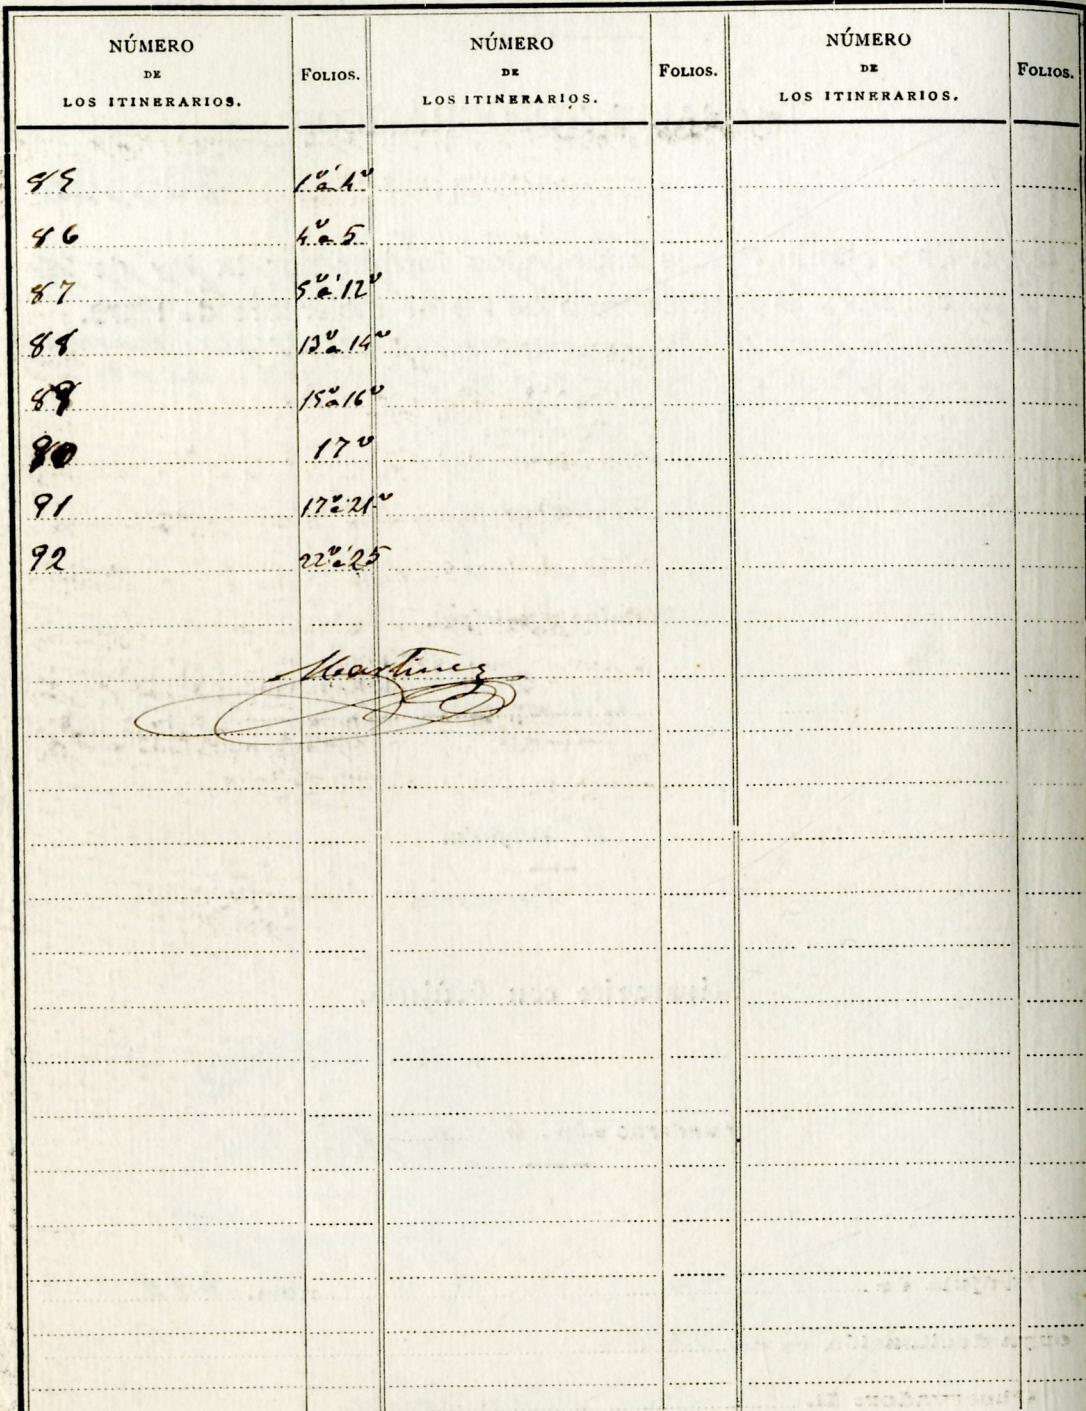 NÚMERO DE LOS ITINERARIOS. FOLIOS. NÚMERO DE LOS ITINERARIOS. FOLIOS. NÚMERO DE LOS ITINERARIOS. FOLIOS.
85 1ᵛ á 4ᵛ
86 4ᵛ a 5
87 5ᵛ á 12ᵛ
88 13ᵛ a 14ᵛ
89 15ᵛ a 16ᵛ
90 17ᵛ
91 17ᵛ a 21ᵛ
92 22ᵛ á 25
Martinez